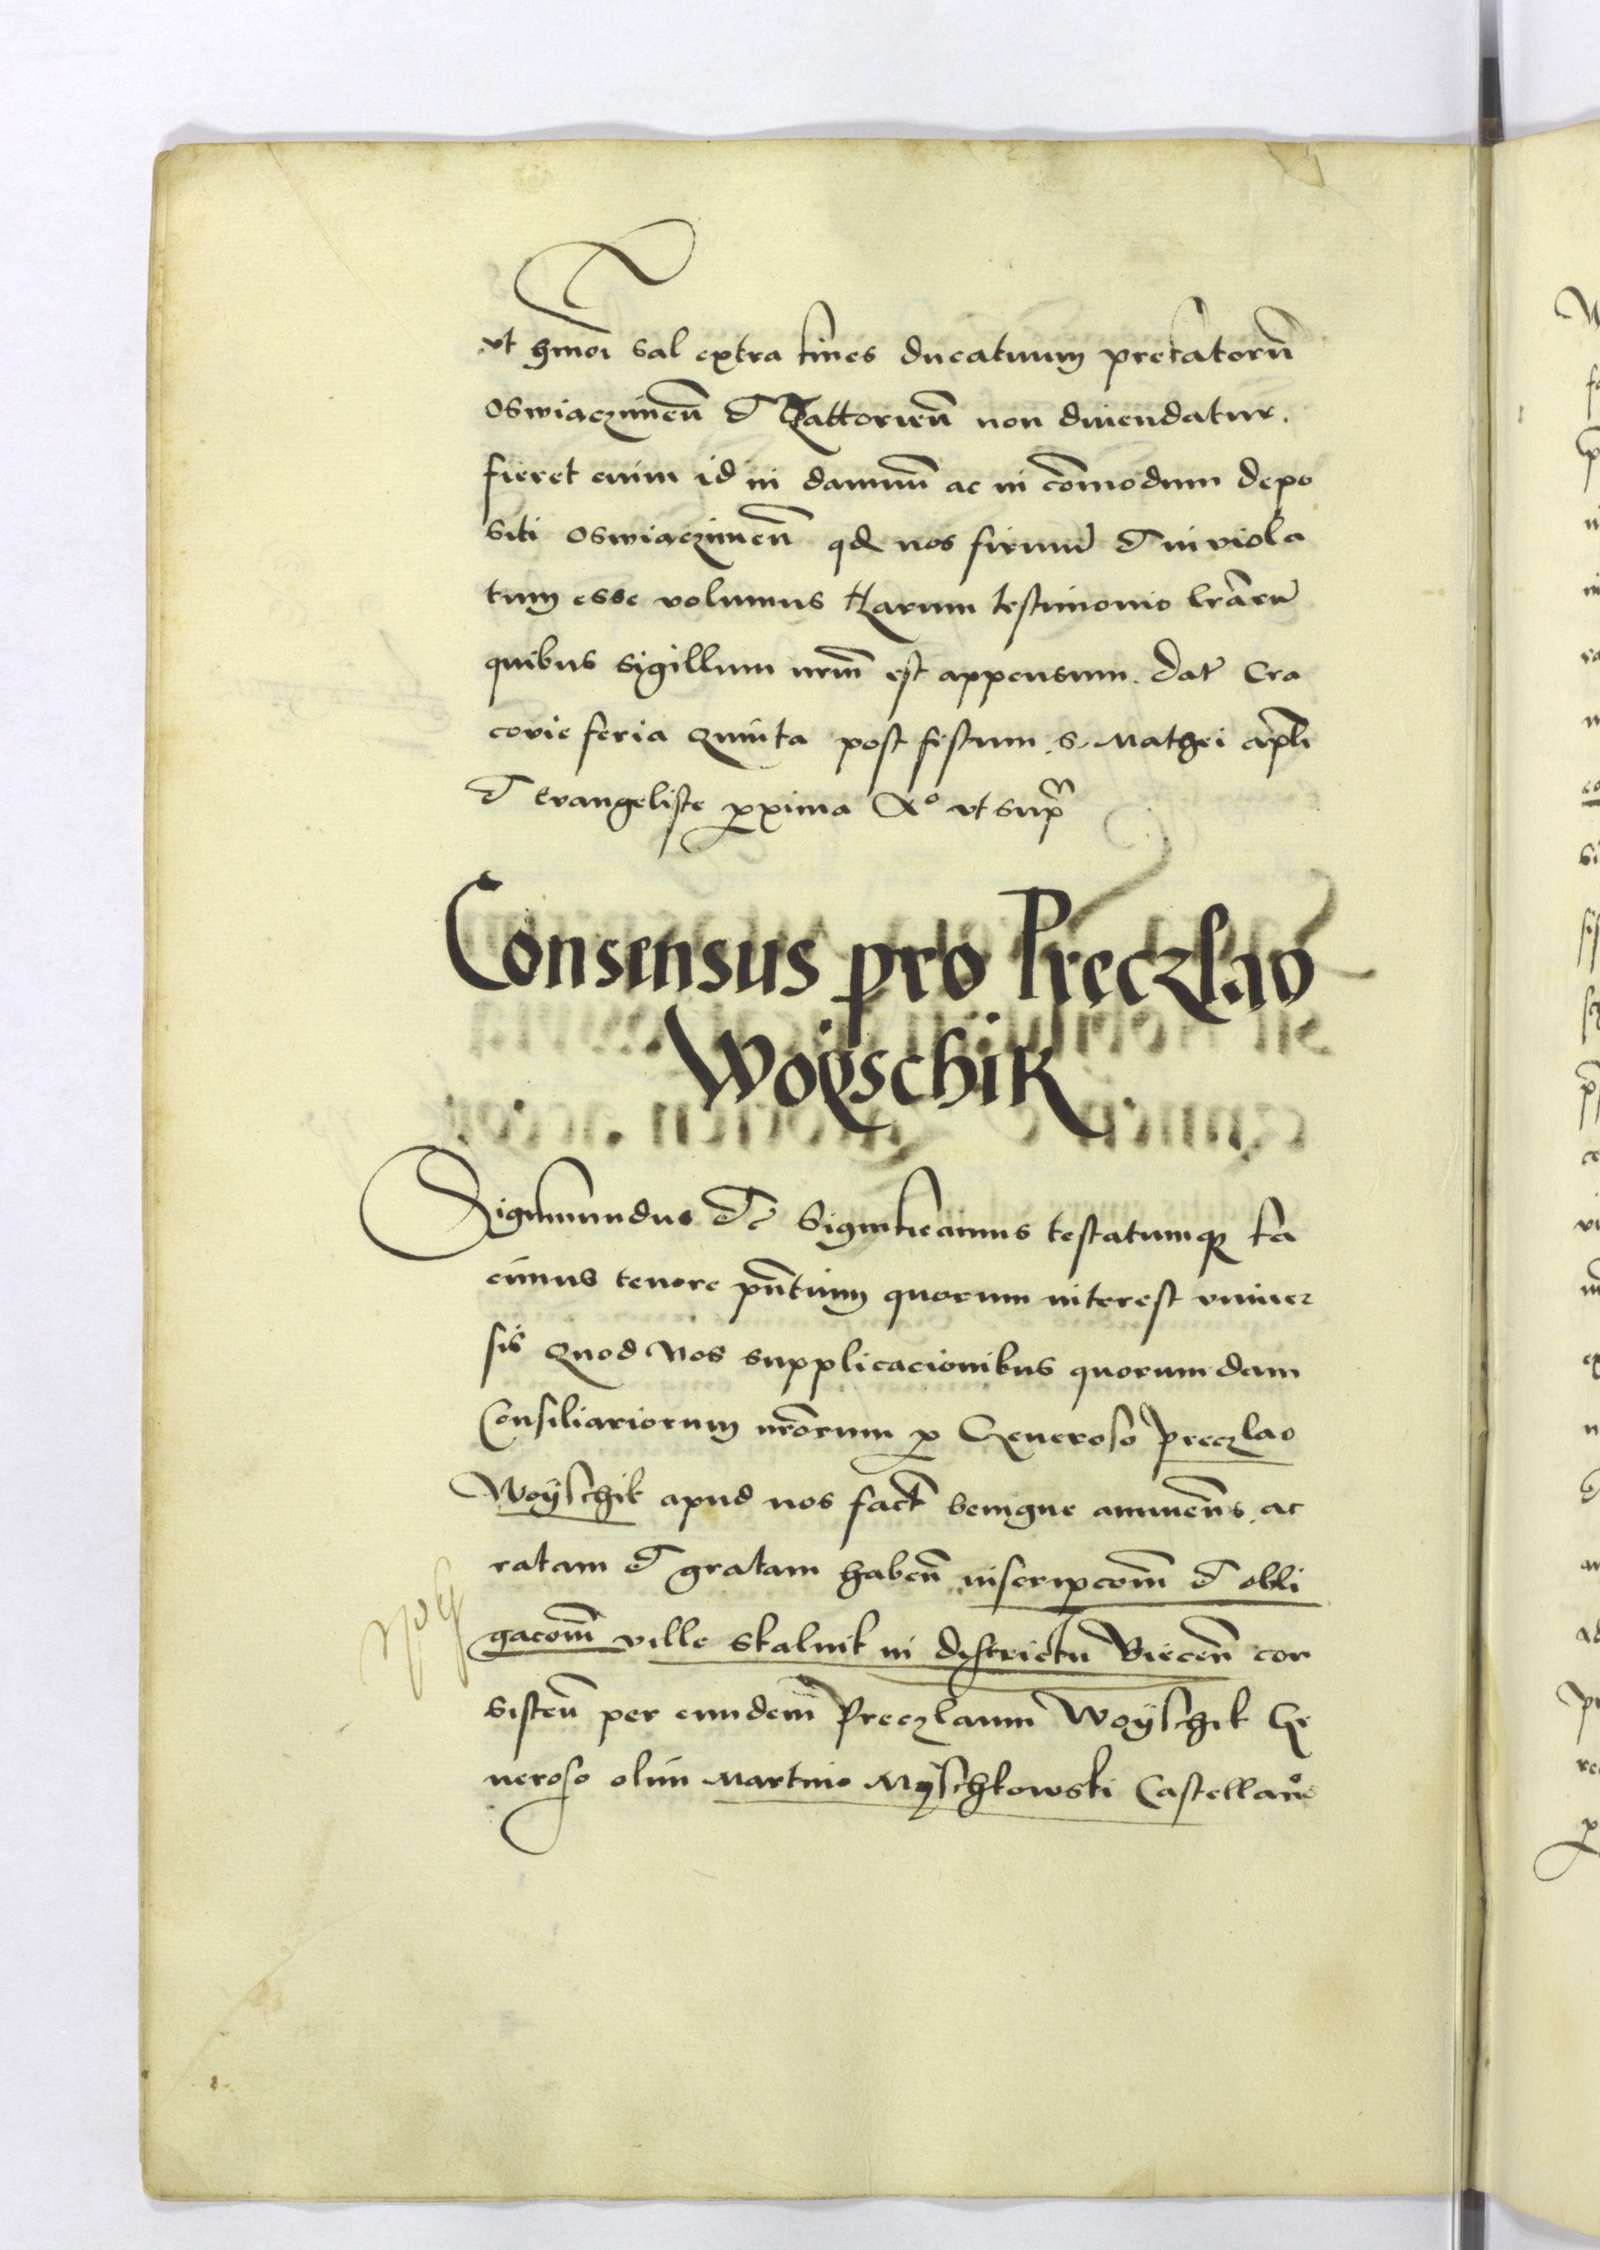 vt hmoi sal extra fines ducatuum prefatorũ
Oswiaczimeñ et Zattorieñ non diuendatur.
fieret enim id in damnũ ac in cõmodum depo
siti Oswiaczimeñ qd nos firmũ et inviola
tum esse volumus Harum testimonio lrãrũ
quibus sigillum nrm̃ est appensum. Dat Cra
covie feria Quinta post festum s. Mathei apli
et Evangeliste pxima Aº vt supra
Consensus pro Preczlao
Woyschik
Sigismundus etc Significamus testatumqȝ fa
cimus tenore pñtium quorum interest vniuer
sis Quod Nos supplicacionibus quorumdam
Consiliariorum nrõrum p Generoso Preczlao
Woÿschik apud nos fact benigne annueñs ac
ratam et gratam habeñ inscripcom̃ et obli
gacom̃ ville Skalnik in districtu Biecen̄ con
sisteñ per eundem Preczlaum Woÿschik Ge
neroso olim Martino Myschkowski Castellano